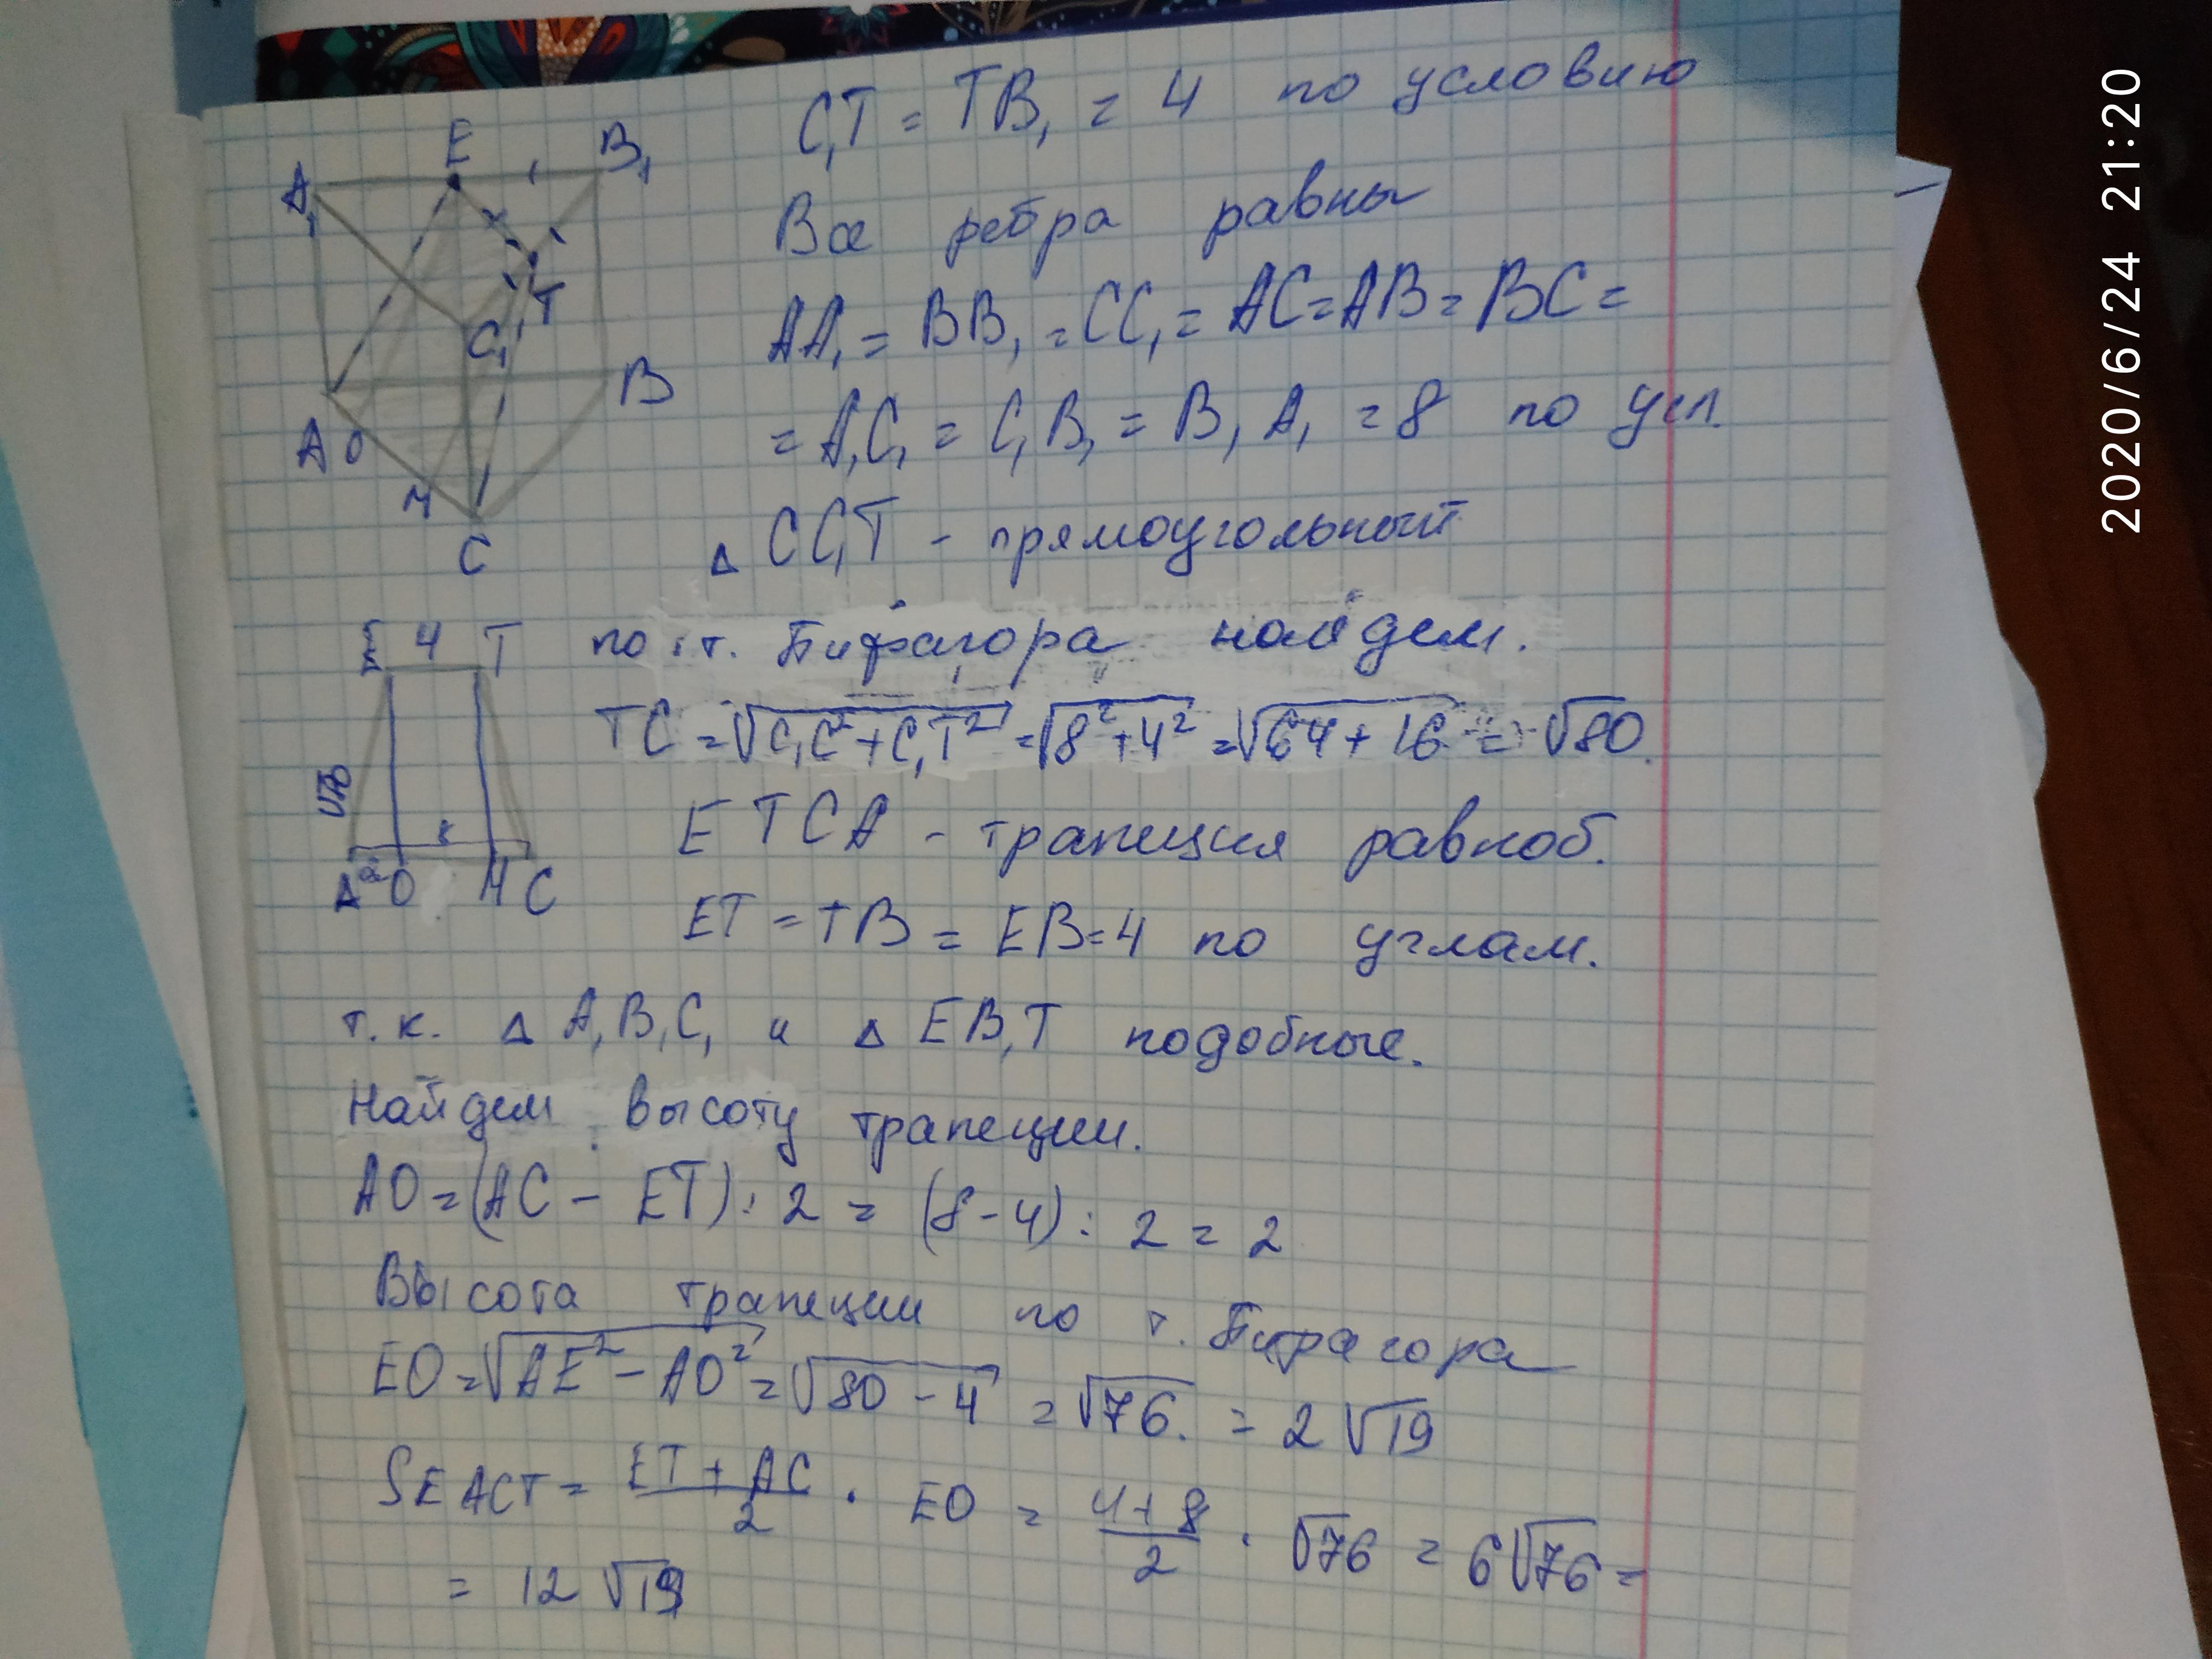 C₁T = TB₁ = 4 по условию
Все ребра равны
AA₁ = BB₁ = CC₁ = AC = AB = BC =
= A₁C₁ = C₁B₁ = B₁A₁ = 8 по усл.
A₁ E B₁
C₁ T
A O B
M
C
Δ CC₁T - прямоугольный
по т. Пифагора найдем.
TC = √(C₁C² + C₁T²) = √(8² + 4²) = √(64 + 16) = √80.
E 4 T
√80
A 2 O M C
ETCA - трапеция равноб.
ET = TB = EB = 4 по углам.
т.к. Δ A₁B₁C₁ и Δ EB₁T подобные.
Найдем высоту трапеции.
AO = (AC - ET) : 2 = (8 - 4) : 2 = 2
Высота трапеции по т. Пифагора
EO = √(AE² - AO²) = √(80 - 4) = √76. = 2√19
SEACT = (ET + AC)/2 · EO = (4 + 8)/2 · √76 = 6√76 =
= 12√19
2020/6/24 21:20